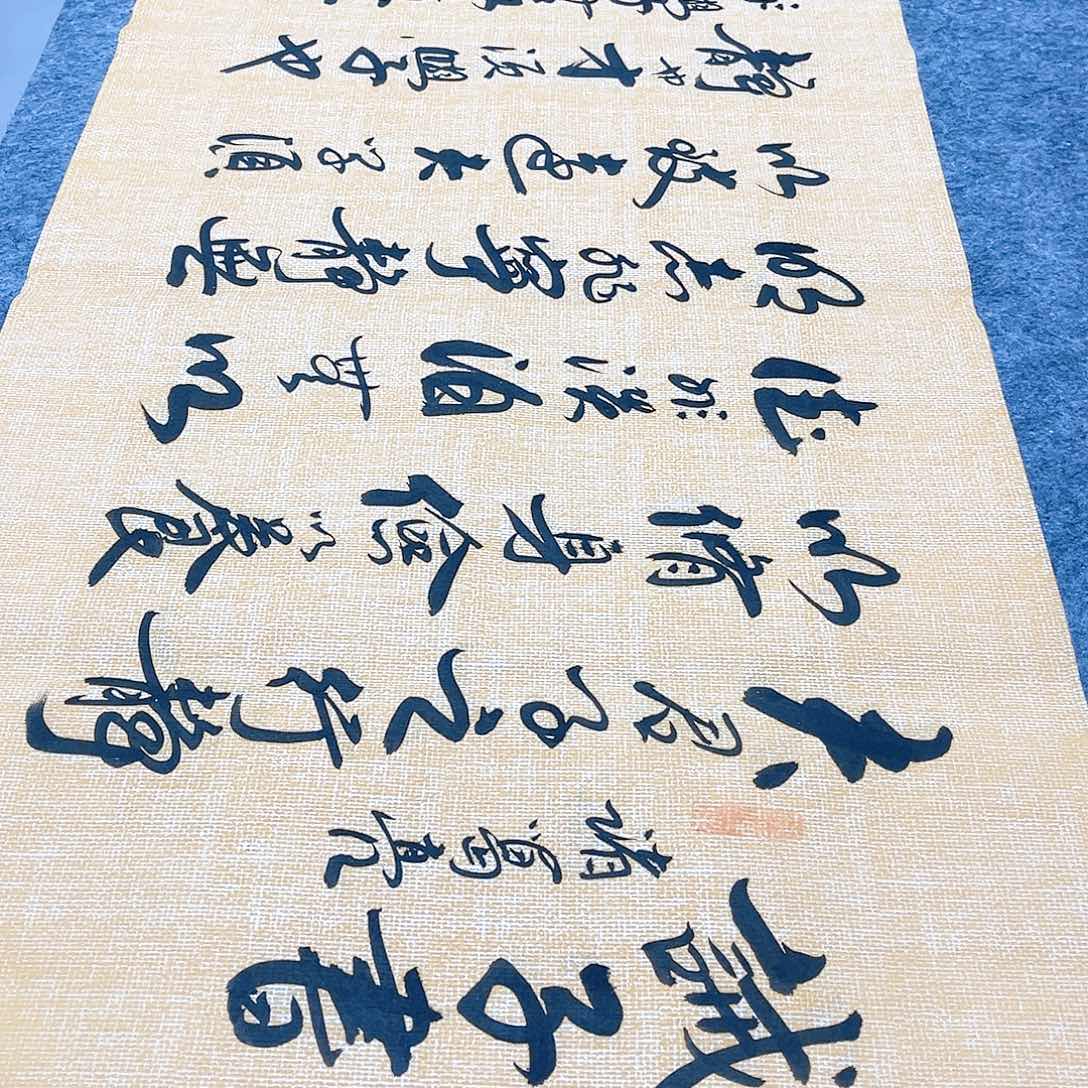 誡子書
諸葛亮
夫君子之行靜
以修身儉以養
德非淡泊無以
明志非寧靜無
以致遠夫学須
靜也才須學也